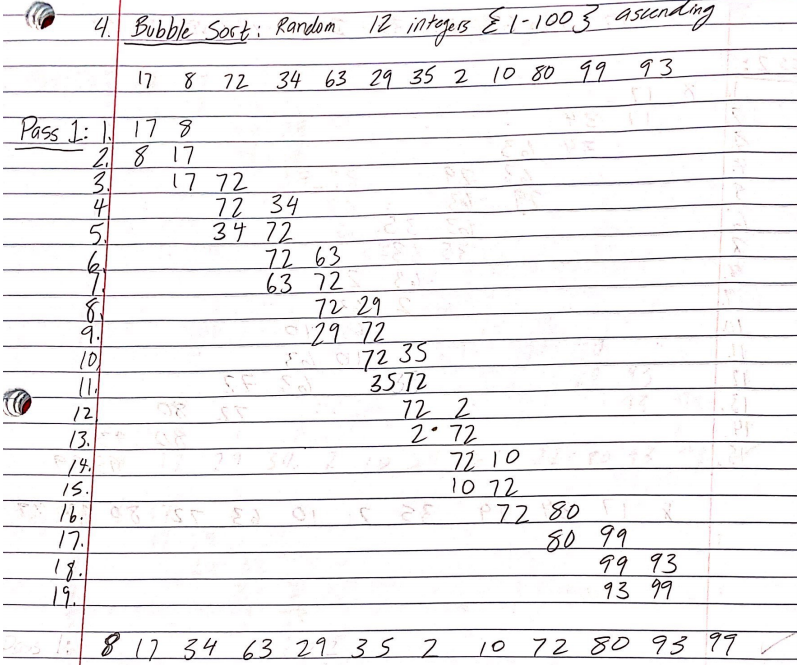 4. Bubble Sort: Random 12 integers {1-100} ascending
17 8 72 34 63 29 35 2 10 80 99 93
Pass 1: 1. 17 8
2. 8 17
3. 17 72
4 72 34
5. 34 72
6. 72 63
7. 63 72
8. 72 29
9. 29 72
10. 72 35
11. 35 72
12 72 2
13. 2 72
14. 72 10
15. 10 72
16. 72 80
17. 80 99
18. 99 93
19. 93 99
8 17 34 63 29 35 2 10 72 80 93 99